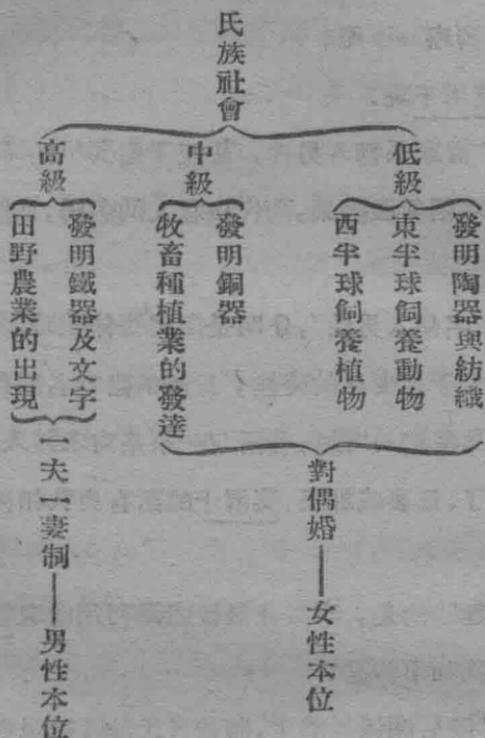 民族社會
低級
發明陶器與紡織
東半球飼養動物
西半球飼養植物
中級
發明銅器
牧畜種植業的發達
對偶婚——女性本位
高級
發明鐵器及文字
田野農業的出現
一夫一妻制——男性本位